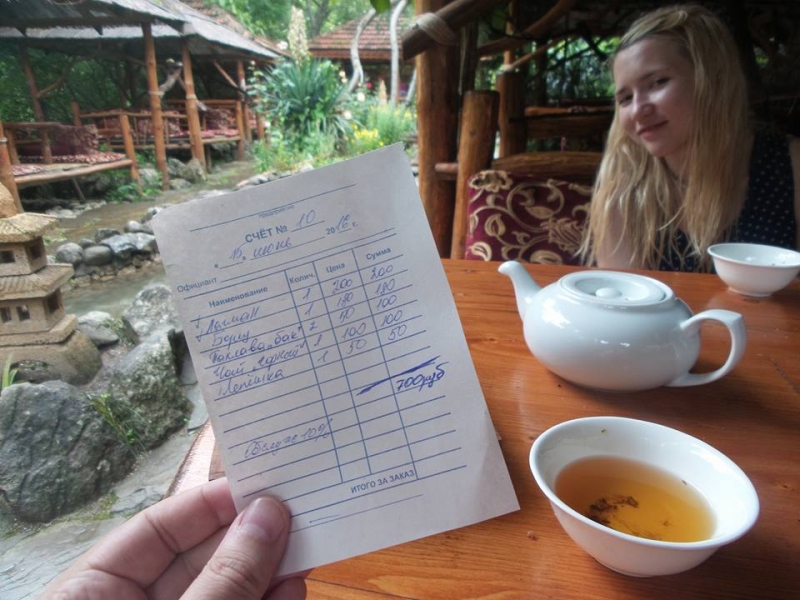 предприятие
СЧЁТ № 10
" 15 " июнь 2016 г.
Официант
Наименование Колич Цена Сумма
Лагман 1 200 200
Борщ 1 180 180
Пахлава "бак" 2 50 100
Чай 1 100 100
Лепешка 1 50 50
700 руб
Обслуж 10%
ИТОГО ЗА ЗАКАЗ